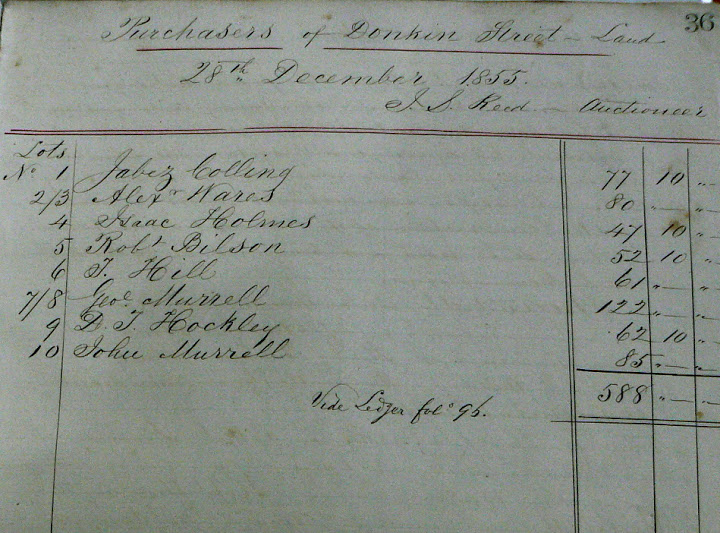 36
Purchasers of Donkin Street – Land
28th December 1855.
J. S. Reed – Auctioneer
Lots
No 1 Jabez Colling 77 10 "–
2/3 Alexr Wares 80 "– "–
4 Isaac Holmes 47 10 "–
5 Robt Bilson 52 10 "–
6 T. Hill 61 "– "–
7/8 Geoe Murrell 122 "– "–
9 D. T. Hockley 62 10 "–
10 John Murrell 85 "– "–
588 "– "–
Vide Ledger folo 96.